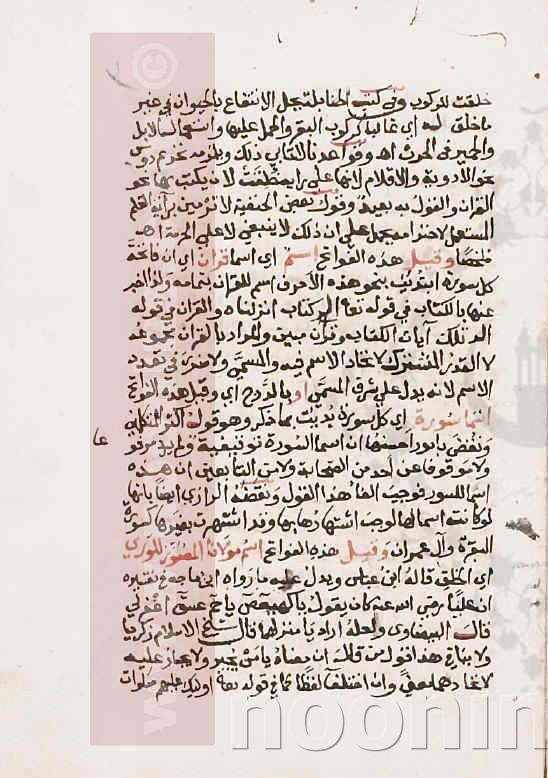 خلقت للركوب وفي كتب الحنابلة يجل الانتفاع بالحيوان في غير
ما خلق له اي غالبا كركوب البقر والحمل عليها واستعمال الابل
والحمير في الحرث اهـ وقواعدنا لا تأبى ذلك ويلزمه تحريم دوس
نحو الادوية والاقلام لانها على
القران والقول به بعيد وقول بعض الحنفية لا ترمين براية القلم
المستعمل لاحترامه يحمل على ان ذلك لا ينبغي لا على الحرمة اهـ
ملخصا وقيل هذه الفواتح اسم اي اسما قران اي ان فاتحة
كل سورة ابتديت بنحو هذه الاحرف اسم للقران بتمامه ولذا اخبر
عنها بالكتاب في قوله تعالى الر كتاب انزلناه والقران في قوله
الر تلك آيات الكتاب وقران مبين والمراد بالقران مجموعه
لا القدر المشترك لاتحاد الاسم فيه والمسمى ولا ضرر في تعدد
الاسم لانه يدل على شرف المسمى او بالدرج اي وقيل هذه الفواتح
اسما سورة اي كل سورة بديت بما ذكر وهو قول اكثر المتكلمين
ونقض بامور احدها ان اسما السورة توقيفية ولم يرد مرفوعا
ولا موقوفا عن احد من الصحابة ولا من التابعين ان هذه
اسما للسور فوجب الغا هذا القول ونقضه الرازي ايضا بانها
لو كانت اسما لها لوجب اشتهارها بها وقد اشتهرت بغيرها كسورة
البقرة وآل عمران وقيل هذه الفواتح اسم مولانا المصور للوري
اي الخلق قاله ابن عباس ويدل عليه ما رواه ابن ماجه في تفسيره
ان عليا رضي الله عنه كان يقول يا كهيعص يا حم عسق اغفر لي
قال البيضاوي ولعله اراد يا منزلها قال شيخ الاسلام زكريا
ولا ينافي هذا قول من قال ان معناه يا من يجير ولا يجار عليه
لاتحادهما معنى وان اختلفا لفظا كما في قوله تعالى اوليك عليهم صلوات
noonin